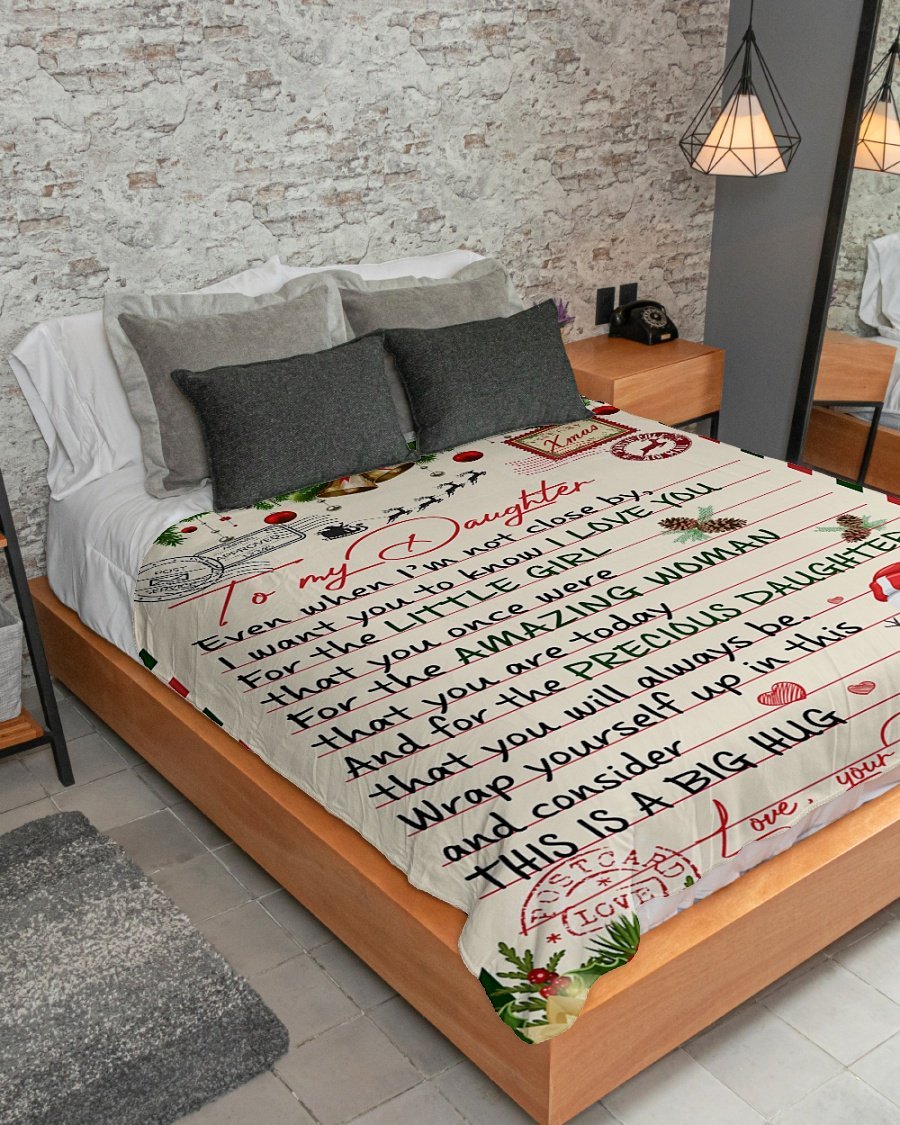 Xmas
APPROVED
To my Daughter
Even when I'm not close by,
I want you to know I LOVE YOU
For the LITTLE GIRL
that you once were
For the AMAZING WOMAN
that you are today
And for the PRECIOUS DAUGHTER
that you will always be.
Wrap yourself up in this
and consider
THIS IS A BIG HUG
Love, your
POSTCARD
LOVE